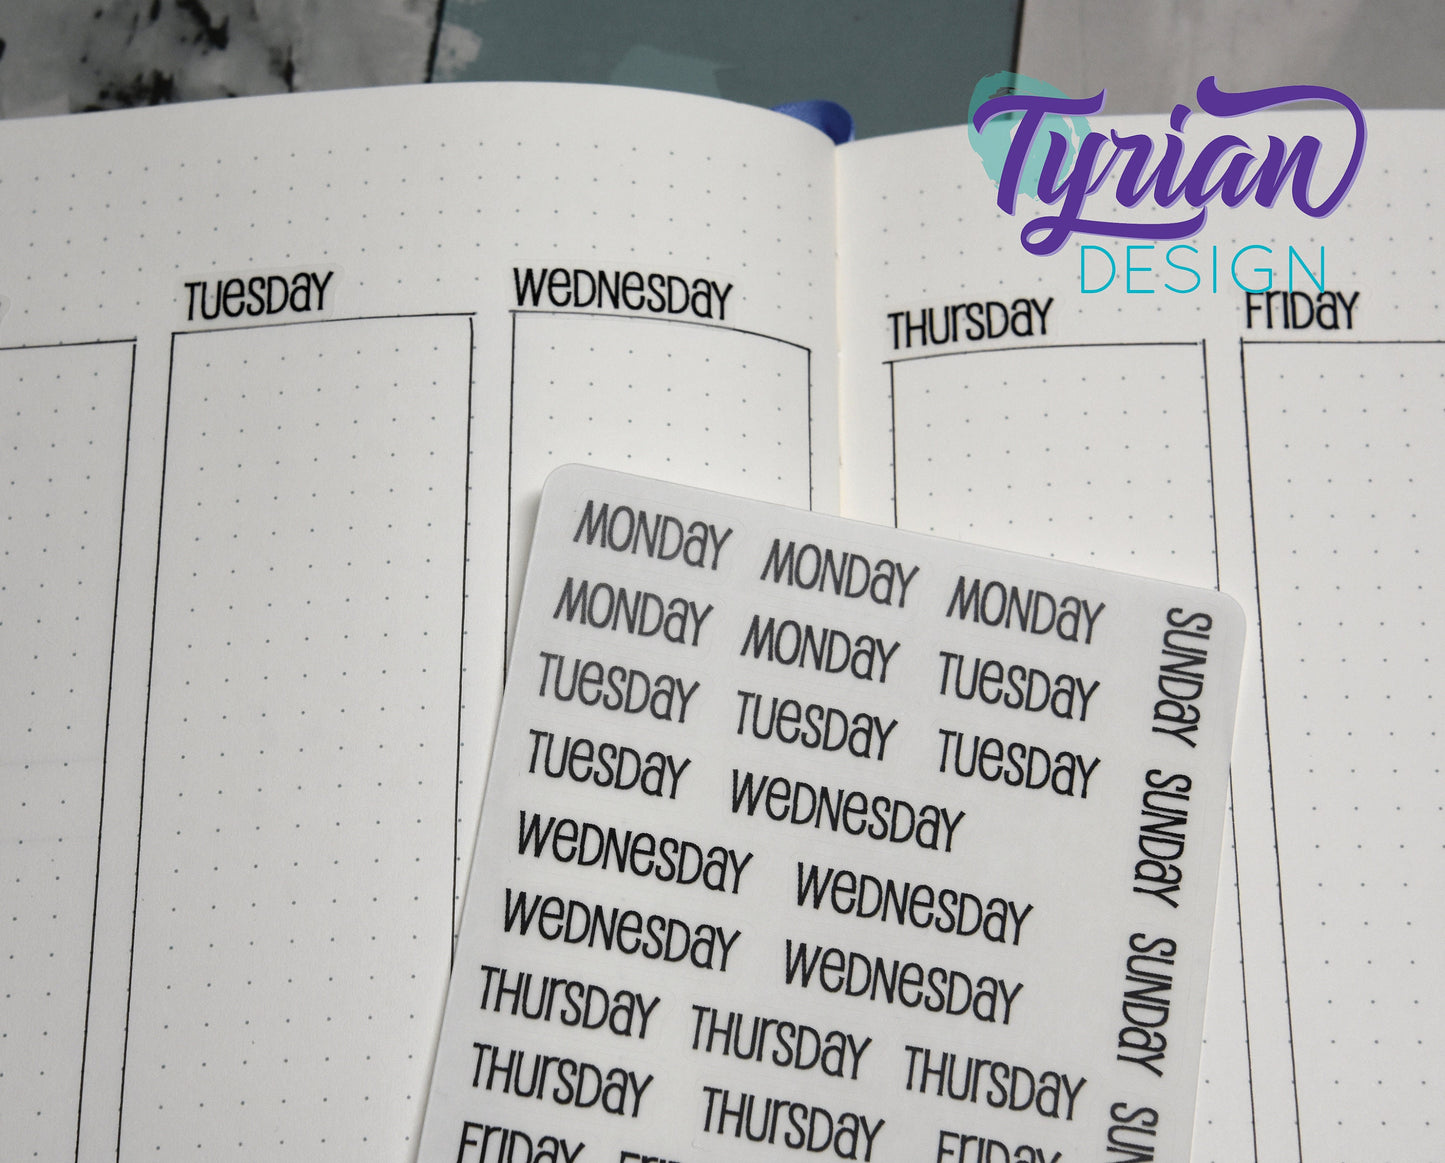 Tyrian
DESIGN
TUeSDaY
WeDNeSDaY
THUrSDaY
FrIDaY
MONDaY MONDaY MONDaY
MONDaY MONDaY TUeSDaY
TUeSDaY TUeSDaY TUeSDaY
TUeSDaY WeDNeSDaY
WeDNeSDaY WeDNeSDaY
WeDNeSDaY WeDNeSDaY
THUrSDaY THUrSDaY THUrSDaY
THUrSDaY THUrSDaY FrIDaY
FrIDaY
SUNDaY
SUNDaY
SUNDaY
SUN